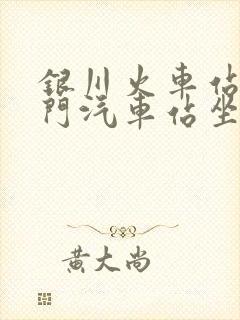 銀川火車站
門汽車站坐
黃大尚